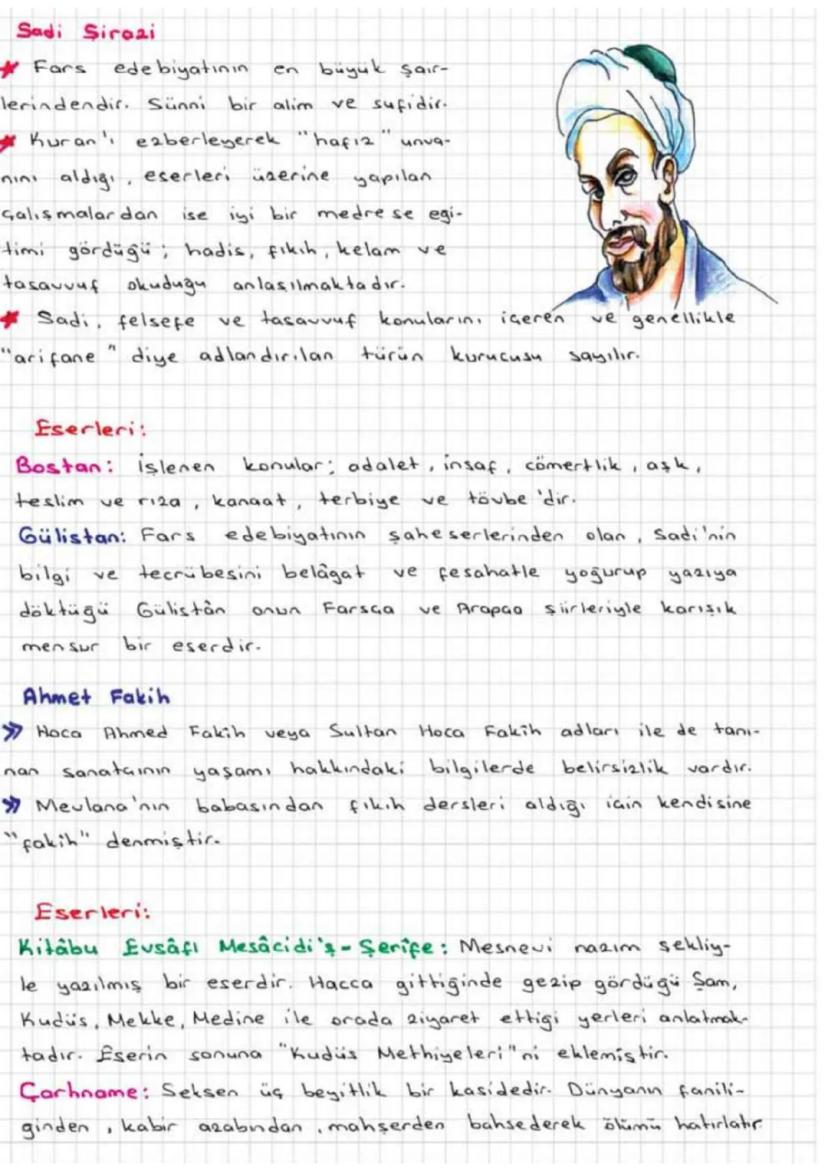 Sadi Şirazi
★ Fars edebiyatının en büyük şair-
lerindendir. Sünni bir alim ve sufidir.
★ Kuran'ı ezberleyerek "hafız" unva-
nını aldığı, eserleri üzerine yapılan
çalışmalardan ise iyi bir medrese eği-
timi gördüğü; hadis, fıkıh, kelam ve
tasavvuf okuduğu anlaşılmaktadır.
★ Sadi, felsefe ve tasavvuf konularını içeren ve genellikle
"arifane" diye adlandırılan türün kurucusu sayılır.
Eserleri:
Bostan: İşlenen konular; adalet, insaf, cömertlik, aşk,
teslim ve rıza, kanaat, terbiye ve tövbe'dir.
Gülistan: Fars edebiyatının şaheserlerinden olan, Sadi'nin
bilgi ve tecrübesini belâgat ve fesahatle yoğurup yazıya
döktüğü Gülistân onun Farsça ve Arapça şiirleriyle karışık
mensur bir eserdir.
Ahmet Fakih
» Hoca Ahmed Fakih veya Sultan Hoca Fakih adları ile de tanı-
nan sanatçının yaşamı hakkındaki bilgilerde belirsizlik vardır.
» Mevlana'nın babasından fıkıh dersleri aldığı için kendisine
"fakih" denmiştir.
Eserleri:
Kitâbu Evsâfı Mesâcidi'ş-Şerîfe: Mesnevi nazım şekliy-
le yazılmış bir eserdir. Hacca gittiğinde gezip gördüğü Şam,
Kudüs, Mekke, Medine ile orada ziyaret ettiği yerleri anlatmak-
tadır. Eserin sonuna "Kudüs Methiyeleri"ni eklemiştir.
Çarhname: Seksen üç beyitlik bir kasidedir. Dünyanın fanili-
ğinden, kabir azabından, mahşerden bahsederek ölümü hatırlatır.